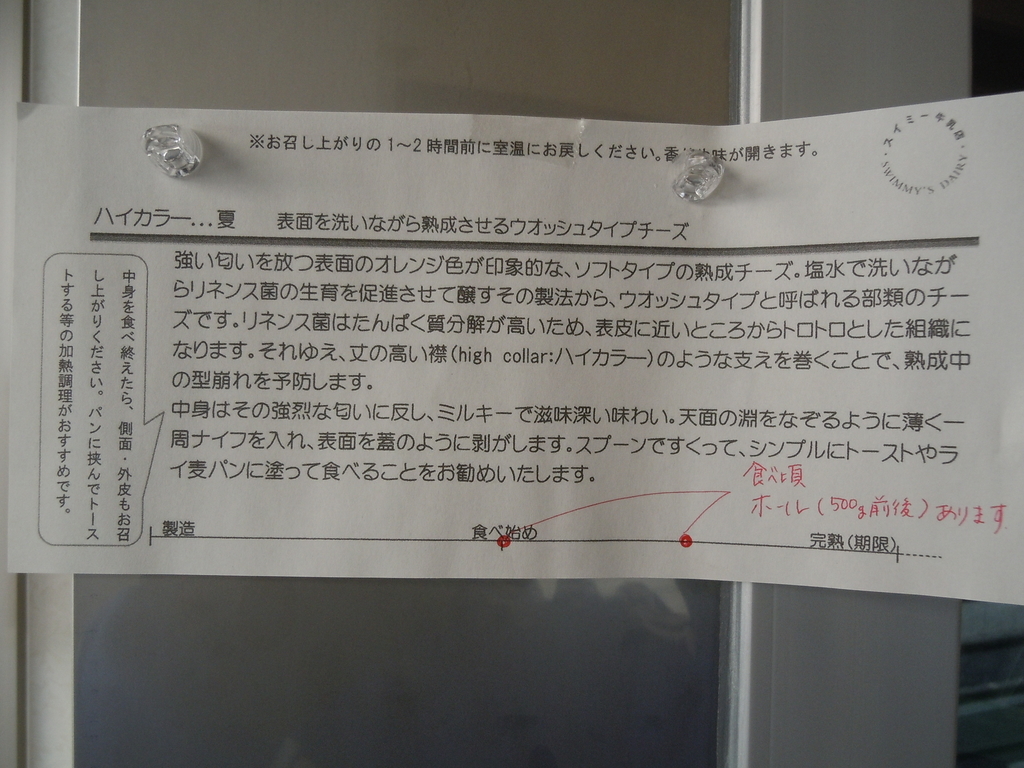 ※お召し上がりの1～2時間前に室温にお戻しください。香 味が開きます。
スイミー牛乳店
SWIMMY'S DAIRY
ハイカラー…夏 表面を洗いながら熟成させるウオッシュタイプチーズ
強い匂いを放つ表面のオレンジ色が印象的な、ソフトタイプの熟成チーズ。塩水で洗いなが
らリネンス菌の生育を促進させて醸すその製法から、ウオッシュタイプと呼ばれる部類のチー
ズです。リネンス菌はたんぱく質分解が高いため、表皮に近いところからトロトロとした組織に
なります。それゆえ、丈の高い襟(high collar:ハイカラー)のような支えを巻くことで、熟成中
の型崩れを予防します。
中身はその強烈な匂いに反し、ミルキーで滋味深い味わい。天面の淵をなぞるように薄く一
周ナイフを入れ、表面を蓋のように剥がします。スプーンですくって、シンプルにトーストやラ
イ麦パンに塗って食べることをお勧めいたします。
中身を食べ終えたら、側面・外皮もお召
し上がりください。パンに挟んでトース
トする等の加熱調理がおすすめです。
食べ頃
ホール(500g前後)あります
製造 食べ始め 完熟(期限)